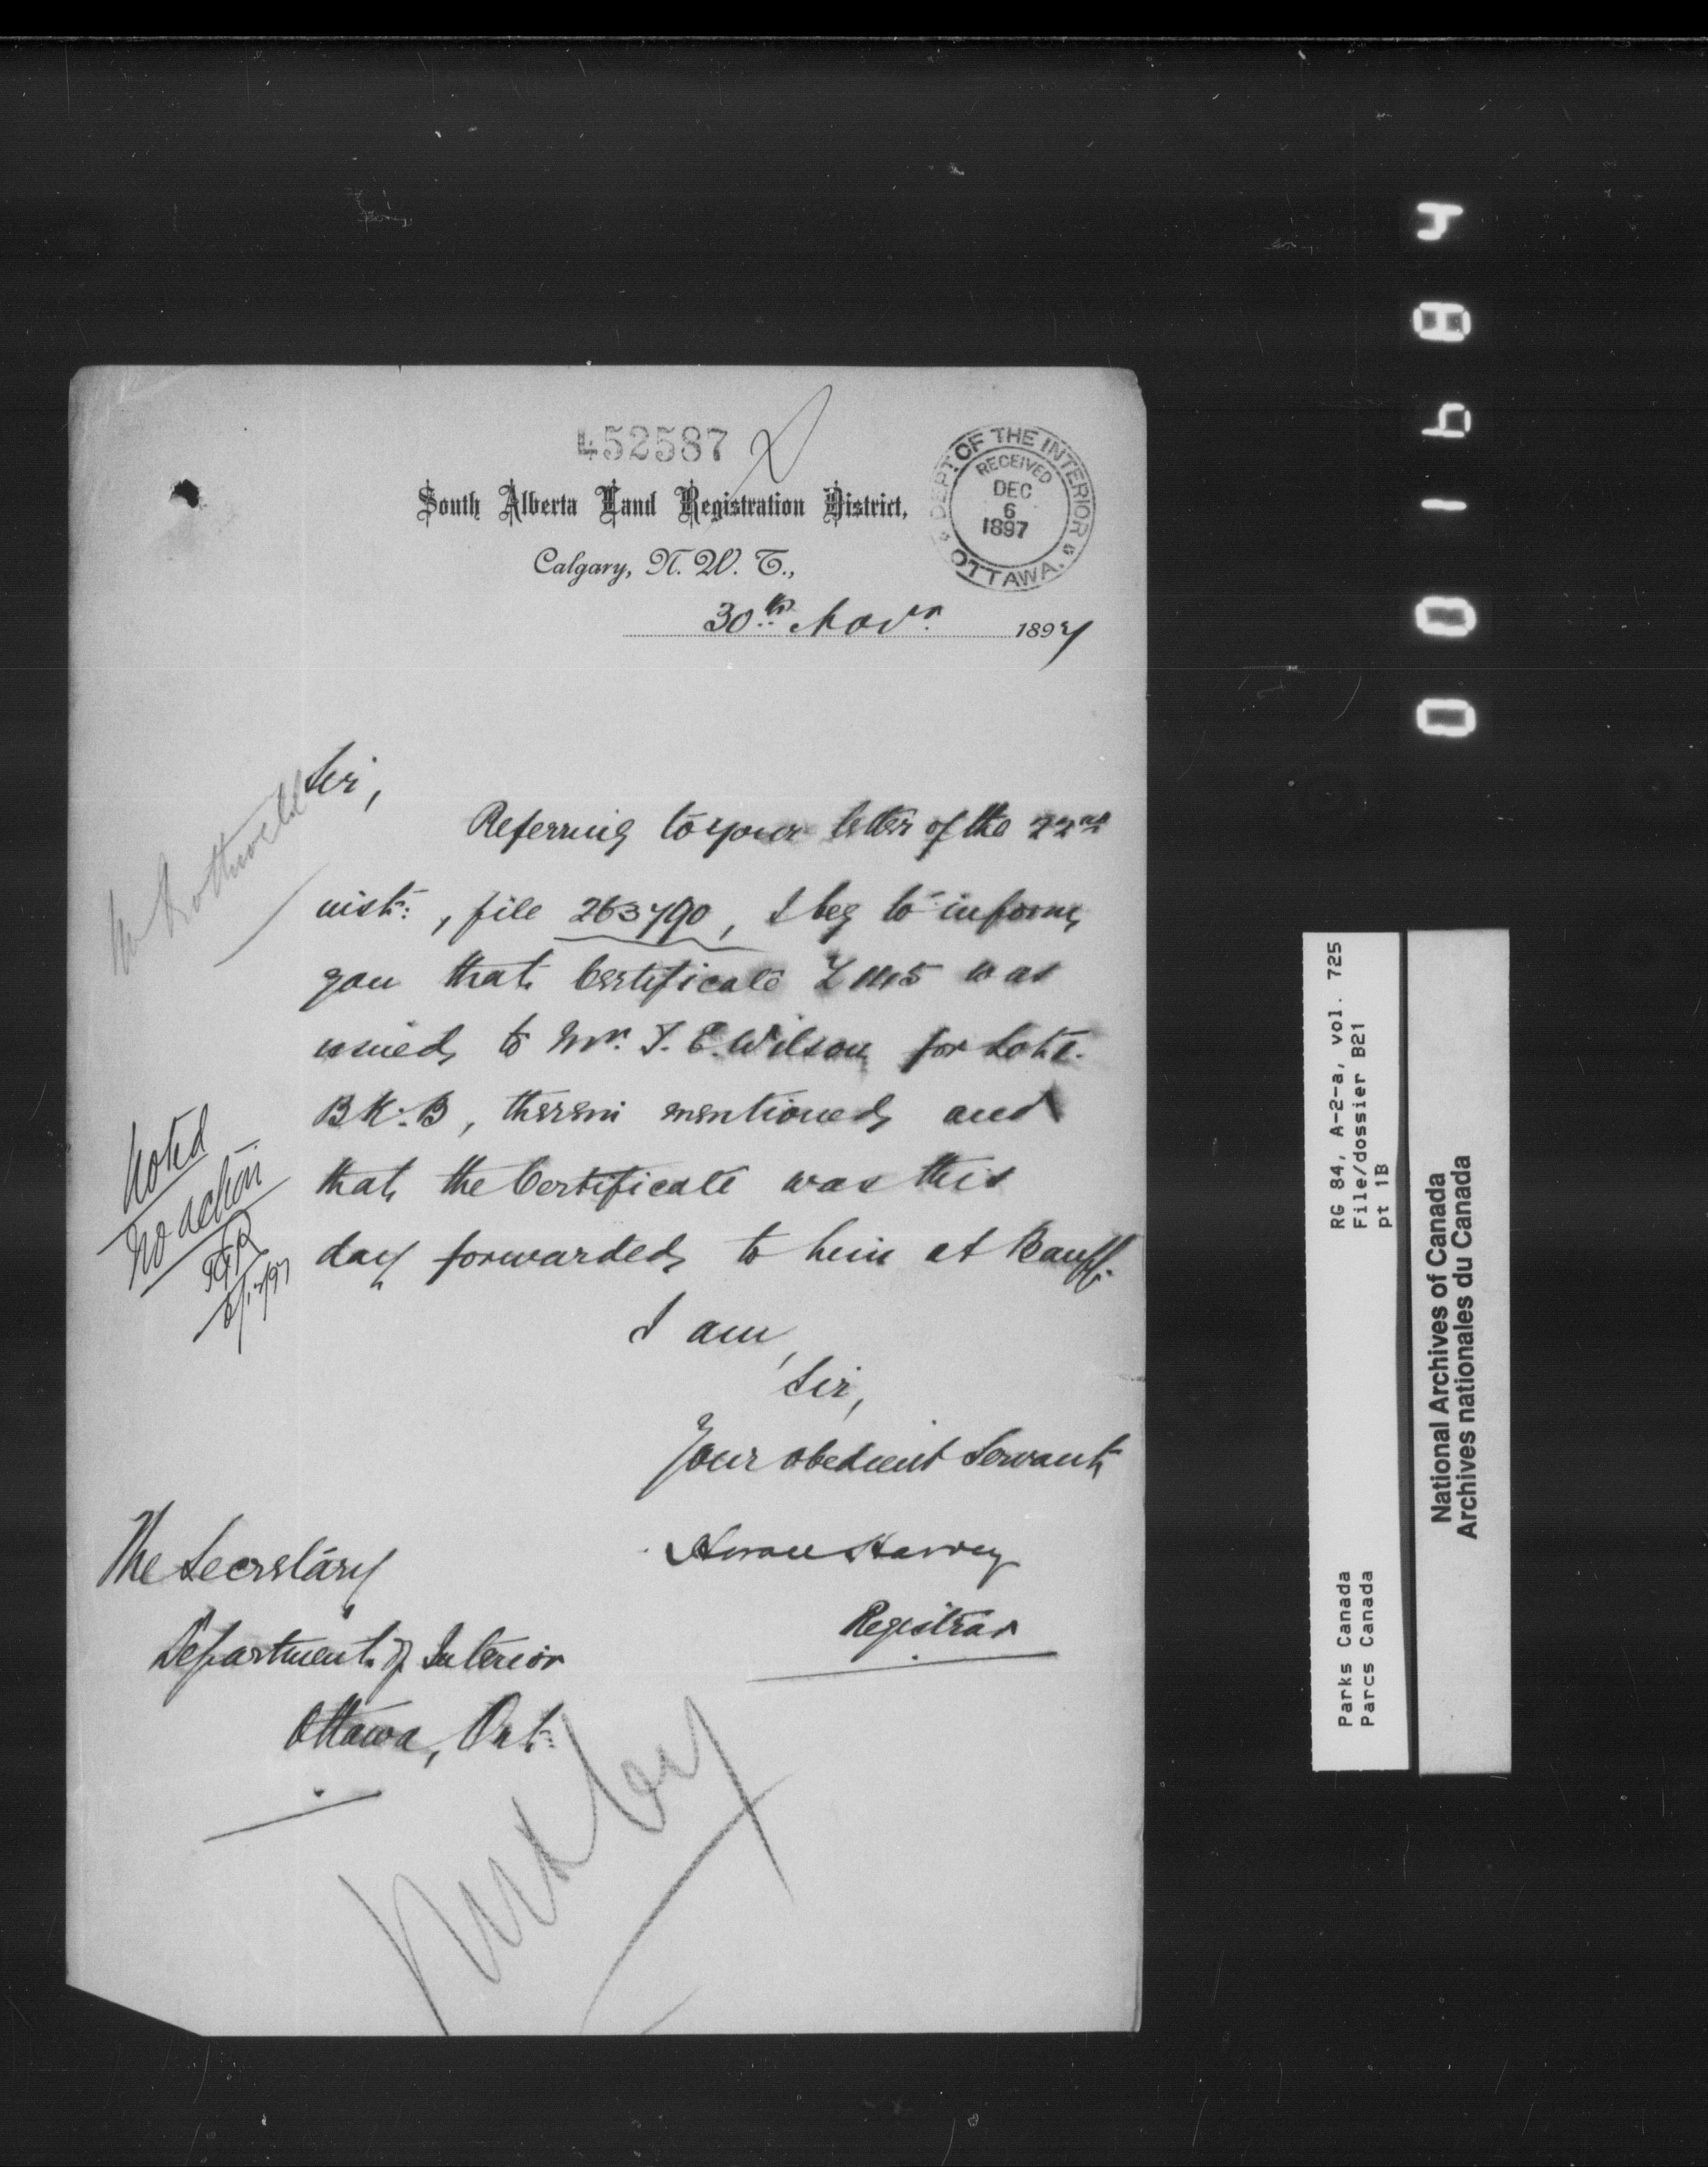 452587
South Alberta Land Registration District,
Calgary, N. W. T.,
DEPT. OF THE INTERIOR
RECEIVED
DEC
6
1897
OTTAWA.
30th Novr. 1897
Sir,
Referring to your letter of the 22nd
inst:, file 263790, I beg to inform
you that Certificate was
issued to Mr. T. E. Wilson for Lot
BK. B, therein mentioned and
that the Certificate was this
day forwarded to him at Banff.
I am,
Sir,
Your obedient Servant
Horace Harvey
Registrar
The Secretary
Department of Interior
Ottawa, Ont:
Mr Rothwell
Noted
No action
RG 84, A-2-a, vol. 725
File/dossier B21
pt 1B
Parks Canada
Parcs Canada
National Archives of Canada
Archives nationales du Canada